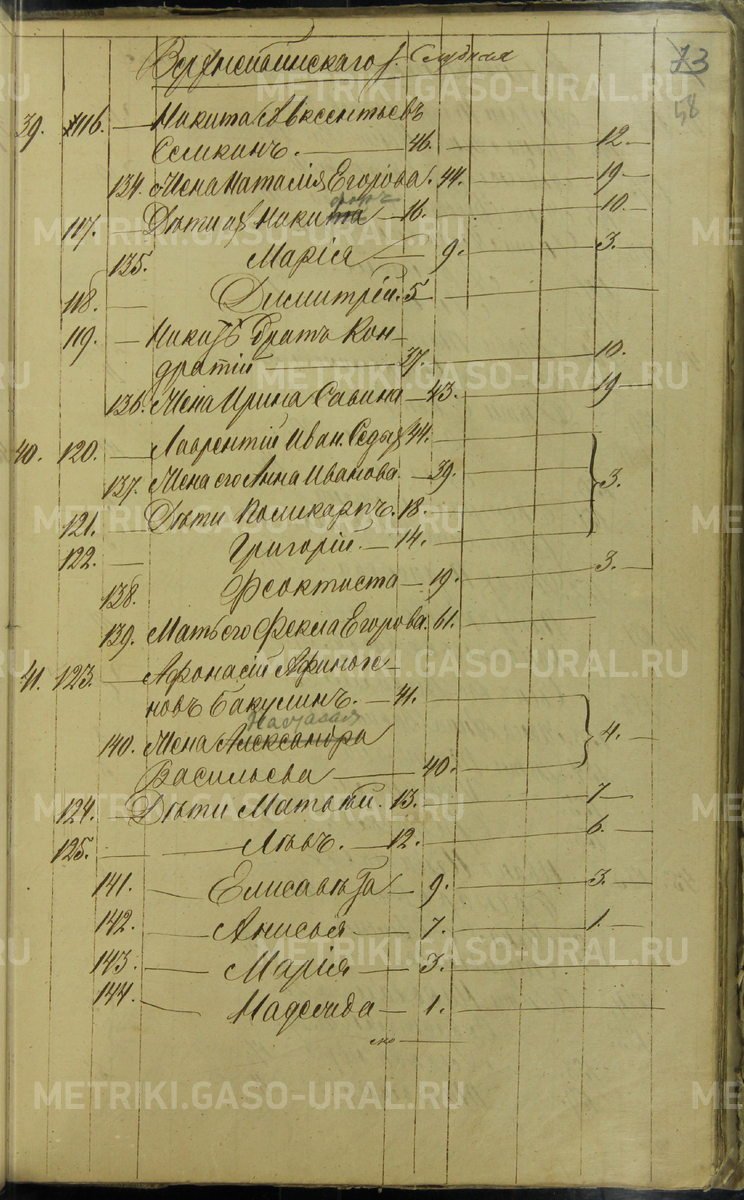 73
58
39. 116. Никита Авксентьевъ
46. 12.
134. Жена Наталія Егорова. 44. 19
117. Дѣти их Никита 16. 10.
135. Марія 9. 3.
118. Димитрій. 5
119. Никиты братъ Кон-
дратій 37. 10.
136. Жена Ирина Савина 43. 19
40. 120. Лаврентій Иван. 44.
137. Жена его Анна Иванова. 39. 3.
121. Дѣти Поликарпъ. 18.
122. Григорій. 14.
138. Феоктиста 19. 3.
139. Мать его Фекла Егорова. 61.
41. 123. Афонасій Афиноге-
новъ Бакулинъ. 41.
140. Жена Александра 4.
Васильева 40.
124. Дѣти Матвѣй. 13. 7
125. Левъ. 12. 6.
141. Елисавѣта 9. 3.
142. Анисья 7. 1.
143. Марія 3.
144. Надежда 1.
METRIKI.GASO-URAL.RU